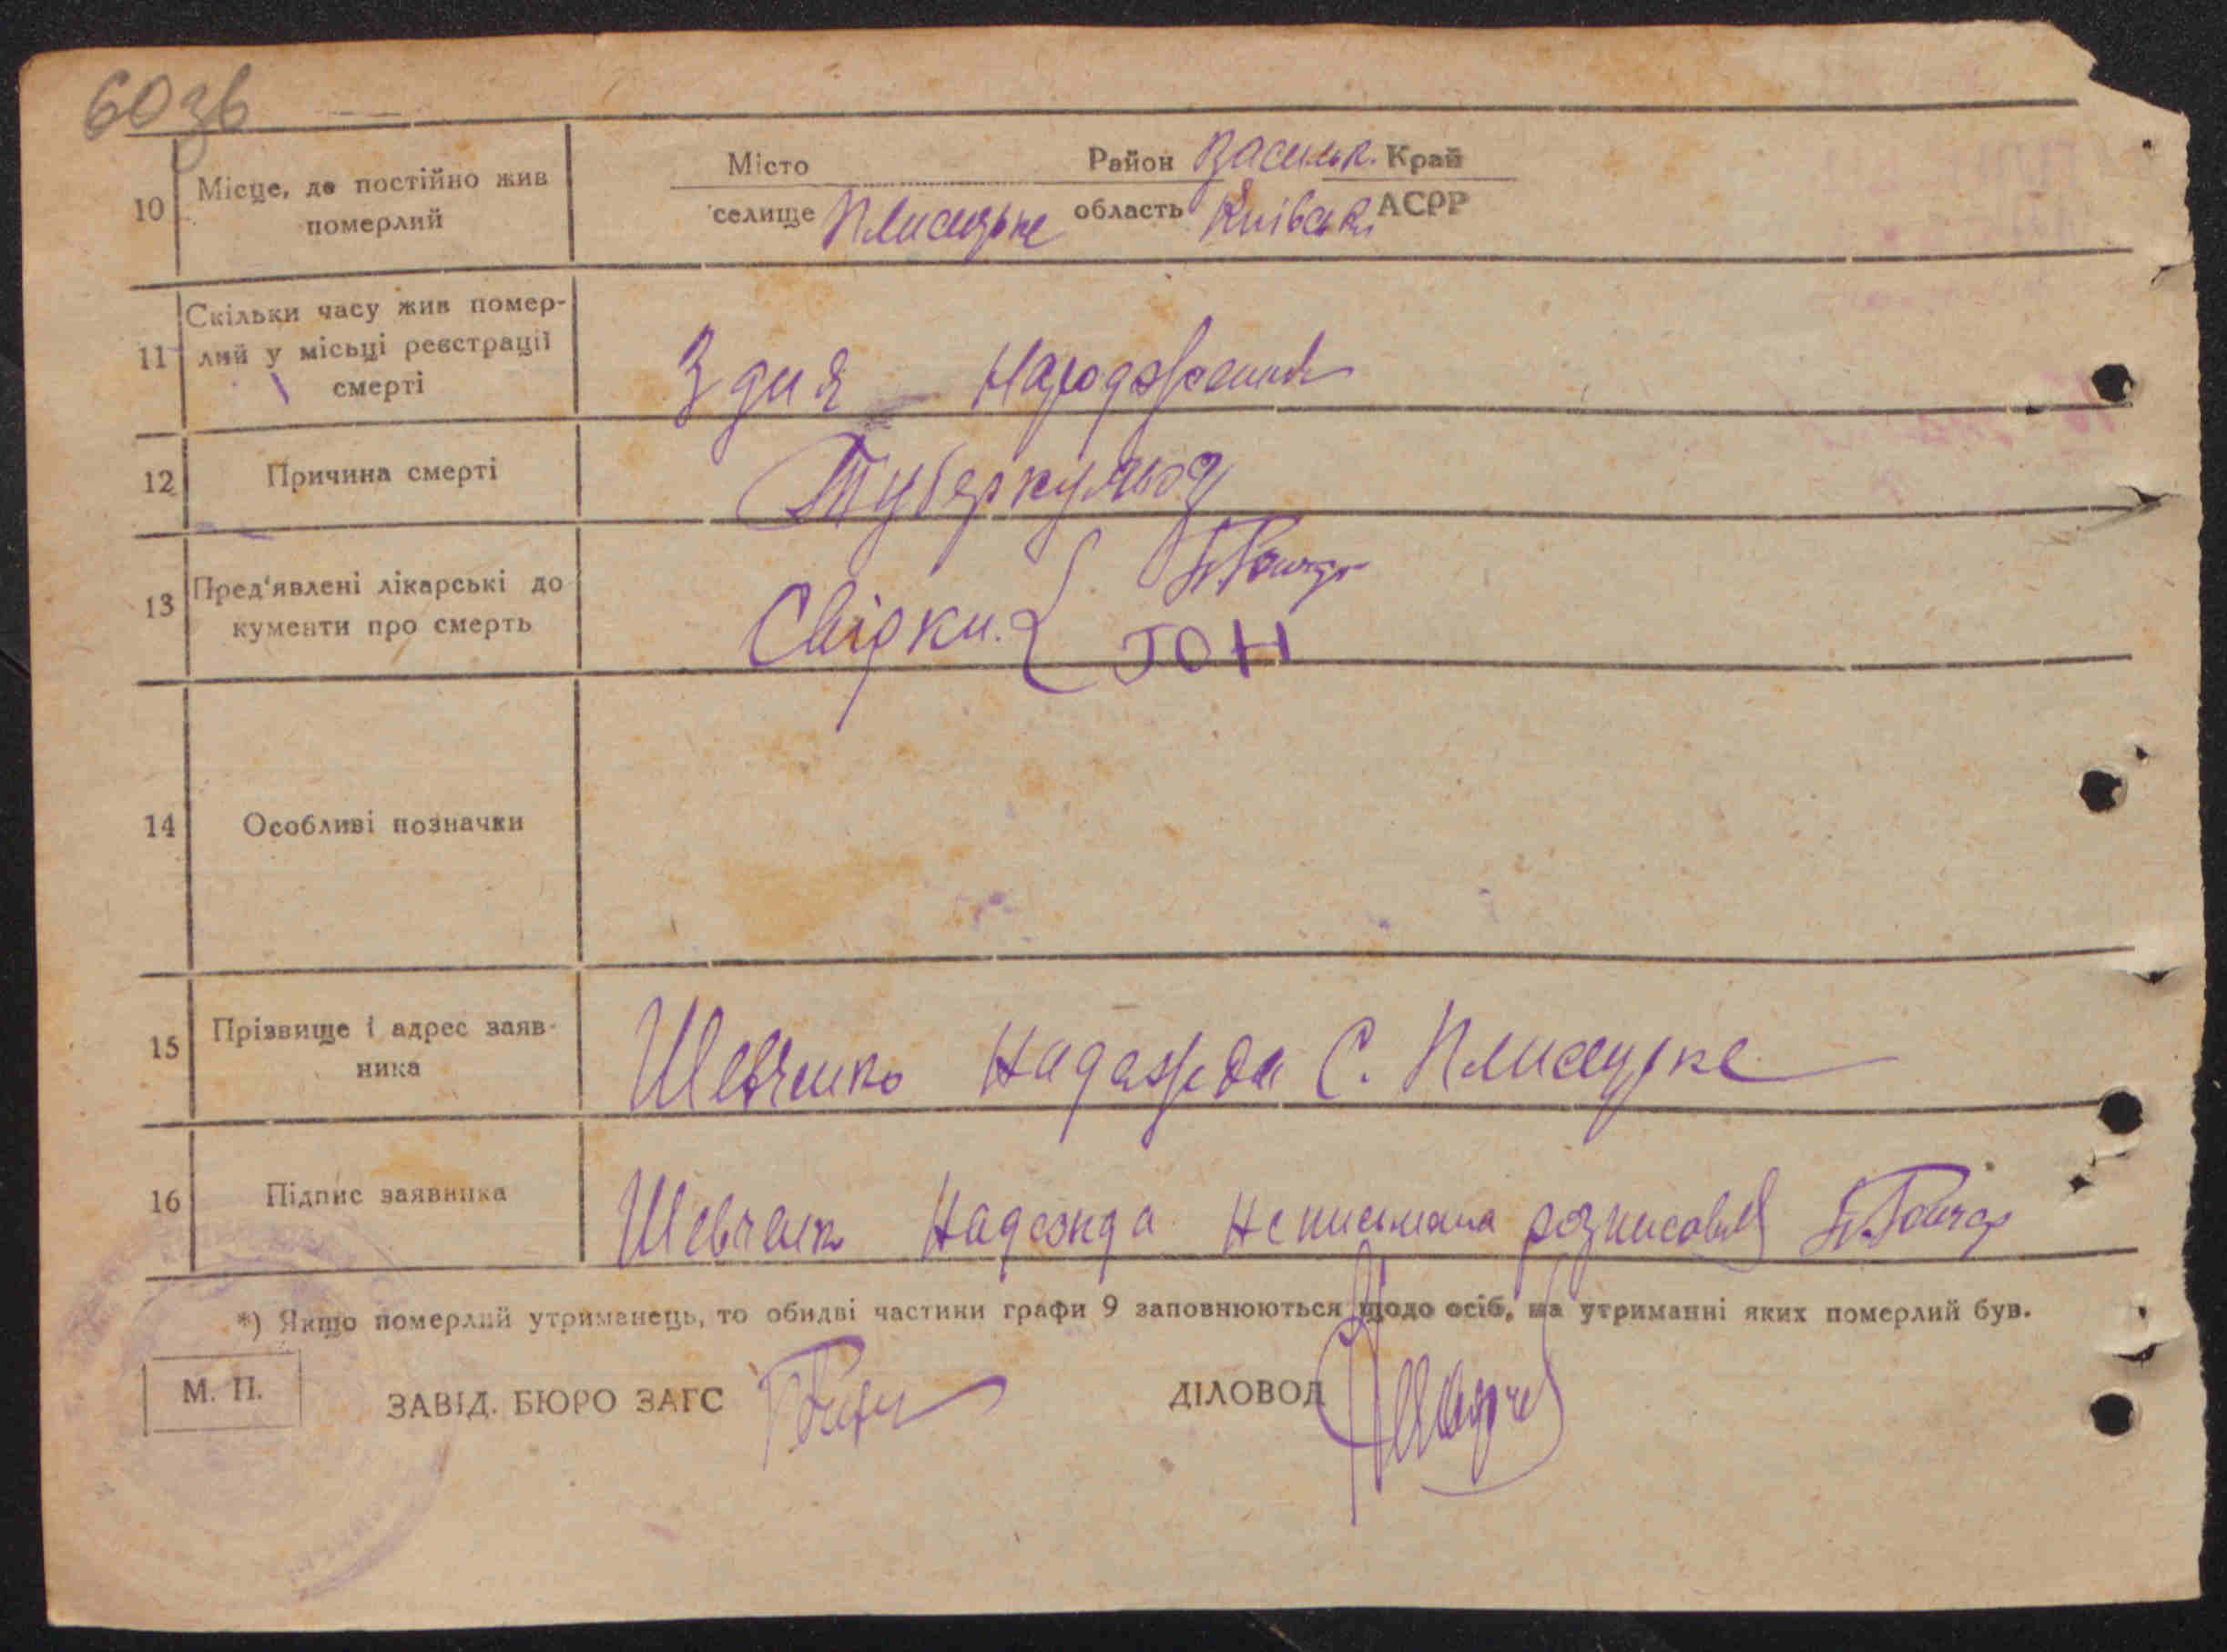 60зв
10 Місце, де постійно жив померлий
Місто Район Васильк. Край
селище Плисецьке область Київськ АСРР
11 Скільки часу жив помер-
лий у місьці реєстрації
смерті
З дня народження
12 Причина смерті
Туберкульоз
13 Пред'явлені лікарські до
кументи про смерть
Свідки. Гончар
ЮН
14 Особливі позначки
15 Прізвище і адрес заяв-
ника
Шевченко Надежда С. Плисецьке
16 Підпис заявника
Шевченк Надеонда Неписьмена розписовся Гончар
*) Якщо померлий утриманець, то обидві частини графи 9 заповнюються щодо осіб, на утриманні яких померлий був.
М. П.
ЗАВІД. БЮРО ЗАГС
ДІЛОВОД